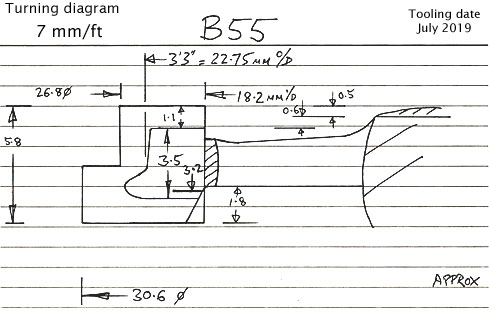 Turning diagram
7 mm/ft
B55
Tooling date
July 2019
3'3" = 22.75 MM O/D
26.8 Ø
18.2 MM I/D
0.5
0.6
1.1
5.8
3.5
3.2
1.8
APPROX
30.6 Ø